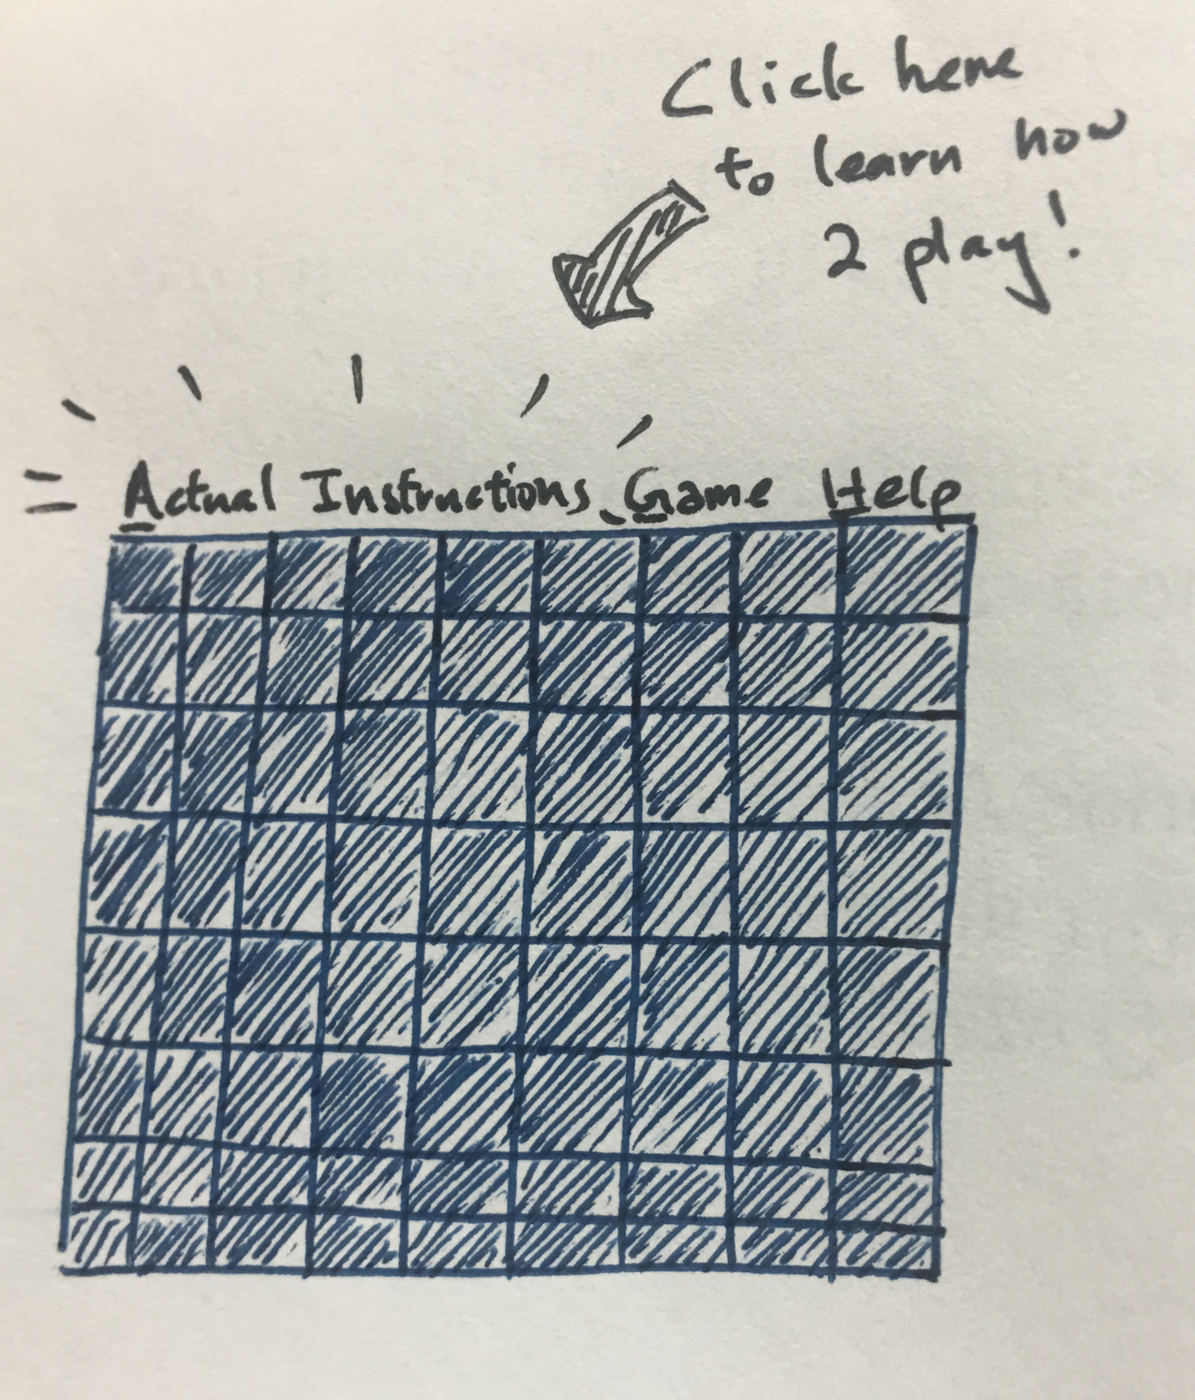 Click here
to learn how
2 play!
Actual Instructions Game Help